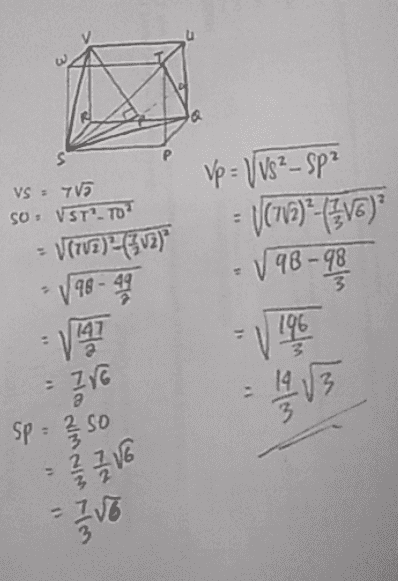 V U
W T
O
R P Q
S P
VS = 7√2
SO = √ST² - TO²
= √(7√2)² - (7/2 √2)²
= √98 - 49/2
= √147/2
= 7/2 √6
SP = 2/3 SO
= 2/3 7/2 √6
= 7/3 √6
Vp = √VS² - SP²
= √(7√2)² - (7/3 √6)²
= √98 - 98/3
= √196/3
= 14/3 √3